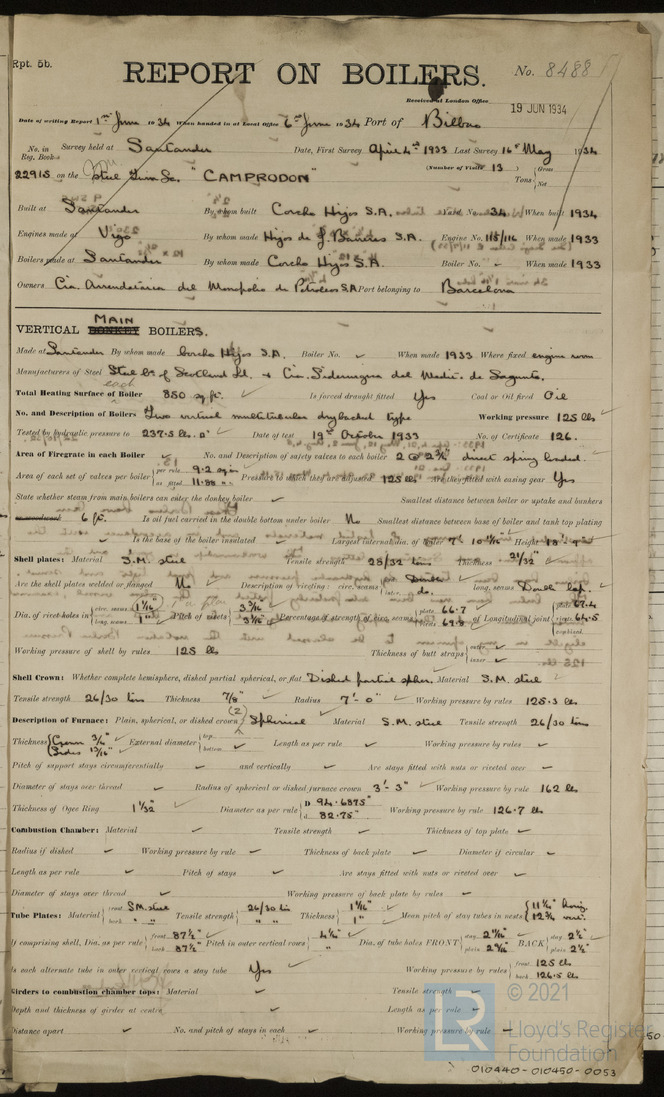 Rpt. 5b.
REPORT ON BOILERS.
No. 8488
Received at London Office 19 JUN 1934
Date of writing Report 1st June 1934 When handed in at Local Office 6th June 1934 Port of Bilbao
No. in Reg. Book Survey held at Santander Date, First Survey April 4th 1933 Last Survey 16th May 1934
22915 on the Steel "CAMPRODON" (Number of Visits 13) Tons Gross Net
Built at Santander By whom built Corcho Hijos S.A. Yard No. 34 When built 1934
Engines made at Vigo By whom made Hijos de J. Barreras S.A. Engine No. 115/116 When made 1933
Boilers made at Santander By whom made Corcho Hijos S.A. Boiler No. When made 1933
Owners Cia. Arrendataria del Monopolio de Petroleos S.A. Port belonging to Barcelona
VERTICAL MAIN DONKEY BOILERS.
Made at Santander By whom made Corcho Hijos S.A. Boiler No. When made 1933 Where fixed engine room
Manufacturers of Steel Steel Co. of Scotland Ld. & Cia. Siderurgica del Medit. de Sagunto.
Total Heating Surface of Boiler each 850 sq. ft. Is forced draught fitted Yes Coal or Oil fired Oil
No. and Description of Boilers Two vertical multitubular drybacked type Working pressure 125 lbs
Tested by hydraulic pressure to 237.5 lbs. □" Date of test 19th October 1933 No. of Certificate 126.
Area of Firegrate in each Boiler No. and Description of safety valves to each boiler 2 @ 2¾" direct spring loaded.
Area of each set of valves per boiler per rule 9.2 sq in as fitted 11.88 " Pressure to which they are adjusted 125 lbs Are they fitted with easing gear Yes
State whether steam from main boilers can enter the donkey boiler Smallest distance between boiler or uptake and bunkers
6 ft. Is oil fuel carried in the double bottom under boiler No Smallest distance between base of boiler and tank top plating
Is the base of the boiler insulated Largest internal dia. of boiler 7' 10 11/16" Height
Shell plates: Material S.M. steel Tensile strength 28/32 tons Thickness 21/32"
Are the shell plates welded or flanged No Description of riveting: circ. seams Double inter. do. long. seams Double lap.
Dia. of rivet holes in circ. seams 1 1/16" long. seams 1" Pitch of rivets Percentage of strength of circ. seams plate 66.7 rivets 69.8 of Longitudinal joint plate 67.4 rivets 64.5 combined
Working pressure of shell by rules 125 lb Thickness of butt straps outer inner
Shell Crown: Whether complete hemisphere, dished partial spherical, or flat Dished partial spher. Material S.M. steel
Tensile strength 26/30 tons Thickness 7/8" Radius 7'-0" Working pressure by rules 125.3 lbs
Description of Furnace: Plain, spherical, or dished crown (2) Spherical Material S.M. steel Tensile strength 26/30 tons
Thickness Crown Sides 13/16" External diameter top bottom Length as per rule Working pressure by rules
Pitch of support stays circumferentially and vertically Are stays fitted with nuts or riveted over
Diameter of stays over thread Radius of spherical or dished furnace crown 3'-3" Working pressure by rule 162 lbs
Thickness of Ogee Ring 1 1/32" Diameter as per rule D 94.6875" d 82.75" Working pressure by rule 126.7 lbs
Combustion Chamber: Material Tensile strength Thickness of top plate
Radius if dished Working pressure by rule Thickness of back plate Diameter if circular
Length as per rule Pitch of stays Are stays fitted with nuts or riveted over
Diameter of stays over thread Working pressure of back plate by rules
Tube Plates: Material front S.M. steel back " " Tensile strength 26/30 tons " " Thickness 1 1/16" 1" Mean pitch of stay tubes in nests 11¼" horiz. 12¾" vert.
If comprising shell, Dia. as per rule front 87½" back 87½" Pitch in outer vertical rows 4¼" " Dia. of tube holes FRONT stay 2 11/16" plain 2 9/16" BACK stay 2½" plain 2½"
Is each alternate tube in outer vertical rows a stay tube Yes Working pressure by rules front 125 lb back 126.5 lb
Girders to combustion chamber tops: Material Tensile strength
Depth and thickness of girder at centre Length as per rule
Distance apart No. and pitch of stays in each Working pressure by rule
© 2021
LR
Lloyd's Register
Foundation
010440-010450-0053